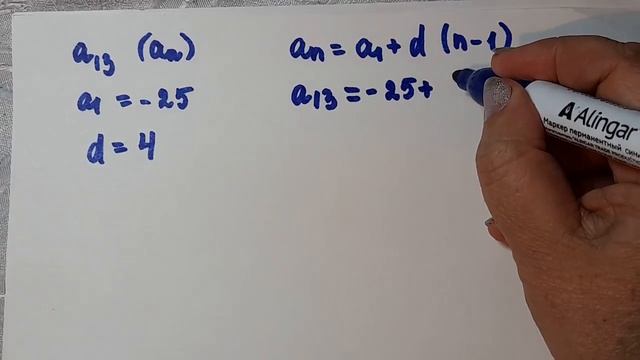 a₁₃ (aₙ)
a₁ = -25
d = 4
aₙ = a₁ + d (n-1)
a₁₃ = -25 +
Alingar
Маркер перманентный